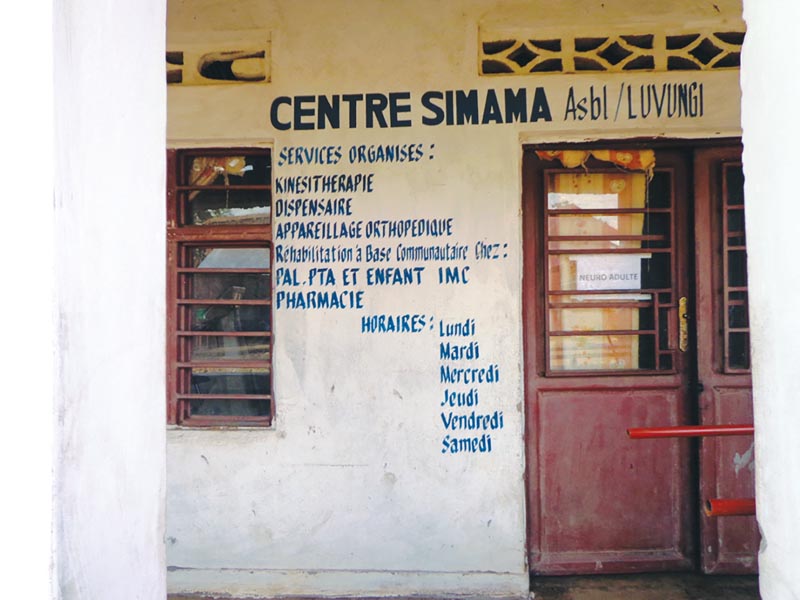 CENTRE SIMAMA Asbl/LUVUNGI
SERVICES ORGANISES:
KINESITHERAPIE
DISPENSAIRE
APPAREILLAGE ORTHOPEDIQUE
Réhabilitation à Base Communautaire Chez:
PAL.PTA ET ENFANT IMC
PHARMACIE
HORAIRES: Lundi
Mardi
Mercredi
Jeudi
Vendredi
Samedi
NEURO ADULTE